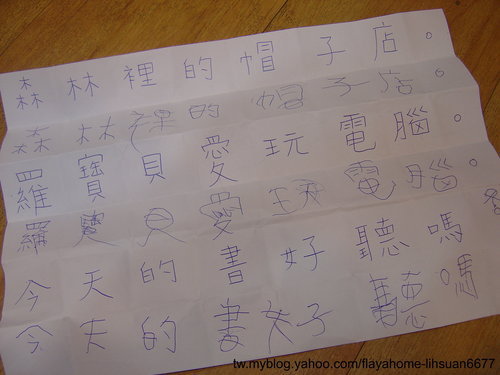 森林裡的帽子店。
森林裡的帽子店。
羅寶貝愛玩電腦。
羅寶貝愛玩電腦。
今天的書好聽嗎
今天的書好聽嗎
tw.myblog.yahoo.com/flayahome-lihsuan6677